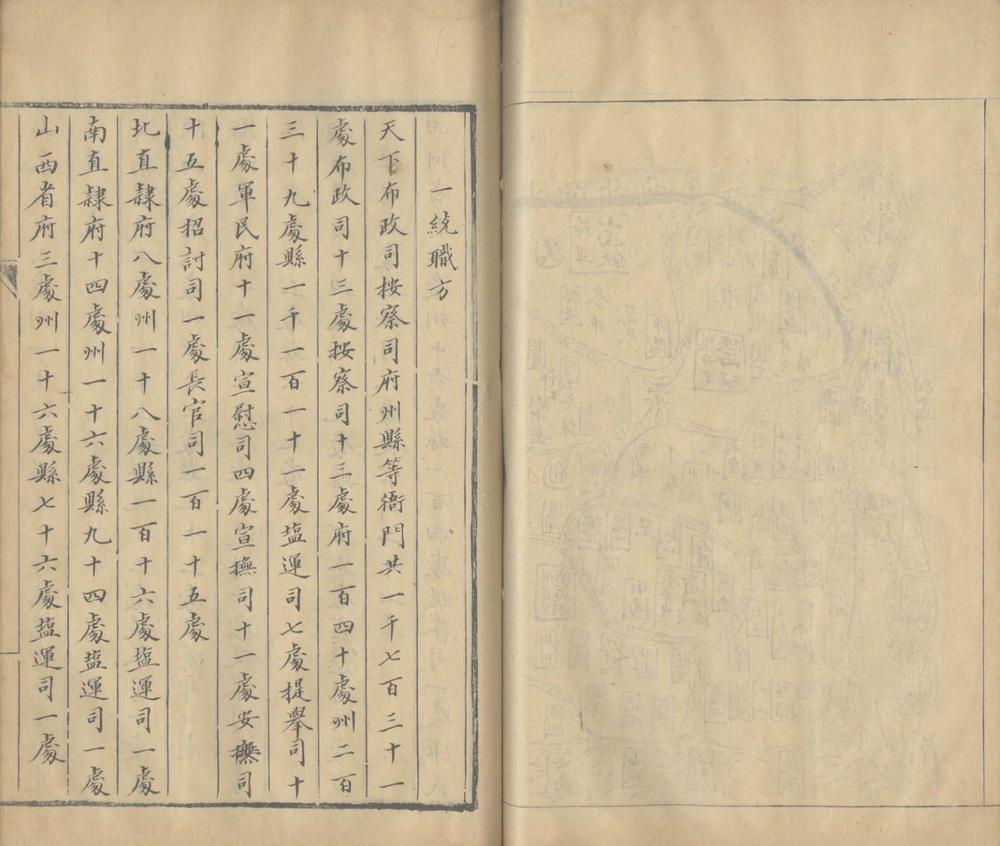 一統職方
天下布政司按察司府州縣等衙門共一千七百三十一
處布政司十三處按察司十三處府一百四十處州二百
三十九處縣一千一百一十一處塩運司七處提舉司十
一處軍民府十一處宣慰司四處宣撫司十一處安撫司
十五處招討司一處長官司一百一十五處
北直隸府八處州一十八處縣一百十六處塩運司一處
南直隸府十四處州一十六處縣九十四處塩運司一處
山西省府三處州一十六處縣七十六處塩運司一處